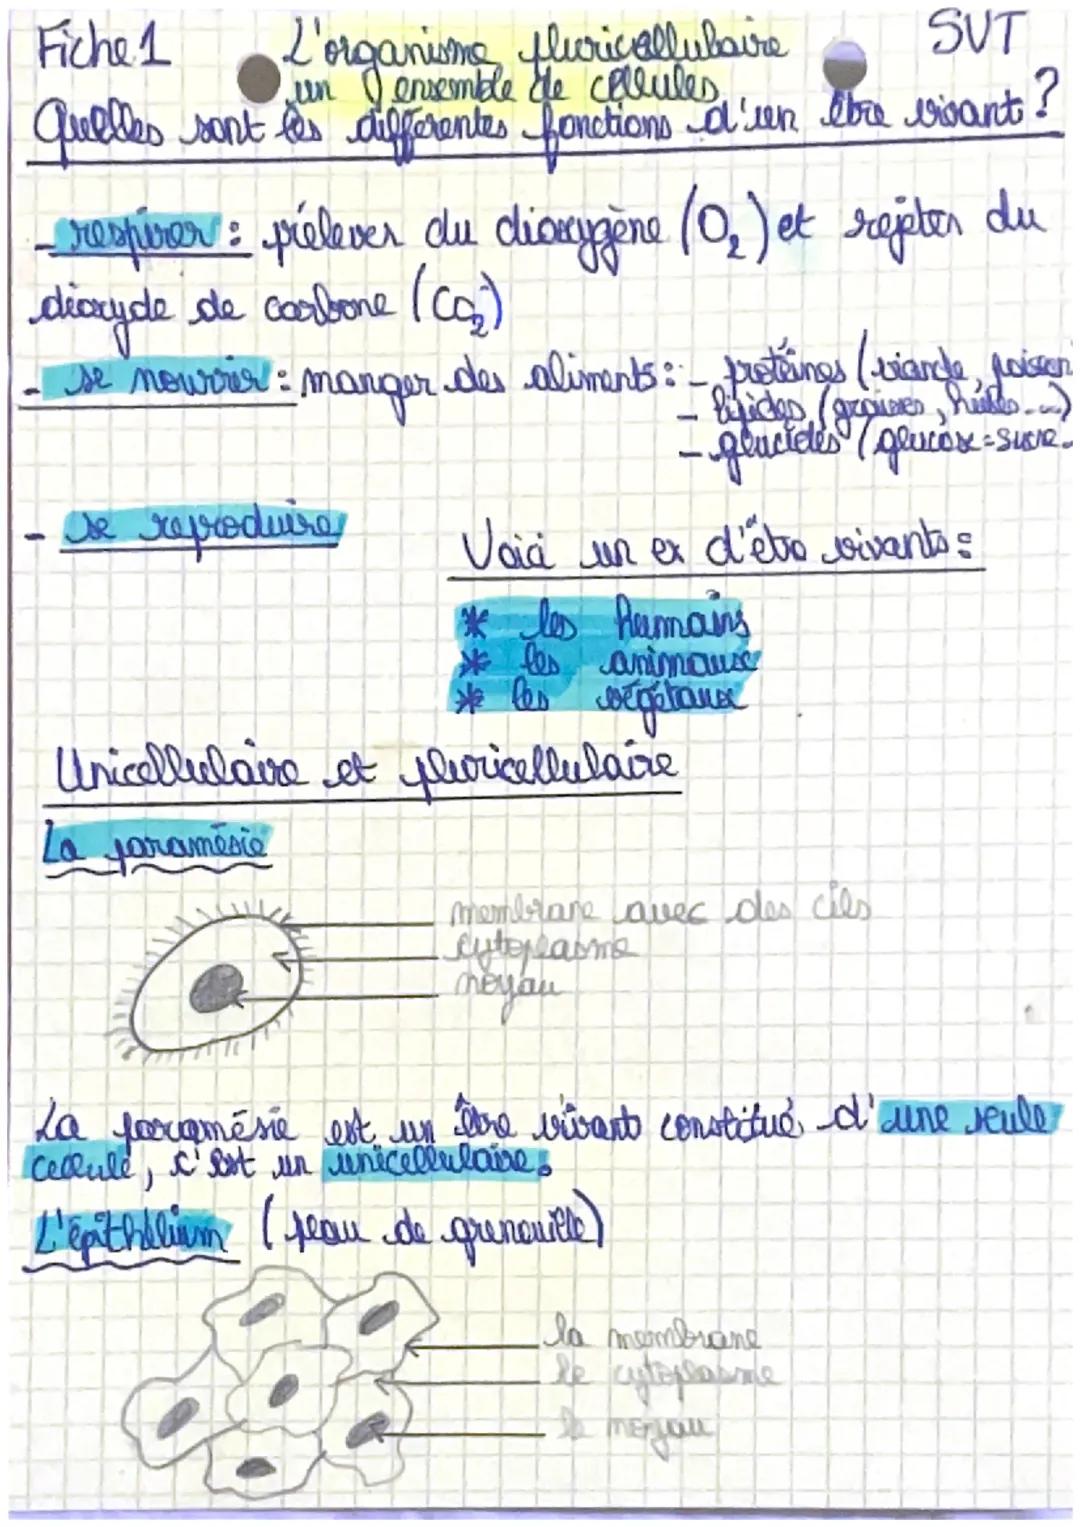 Fiche 1 L'organisme pluricellulaire SVT
un ensemble de cellules
Quelles sont les différentes fonctions d'un être vivant ?
- respirer : prélever du dioxygène (O₂) et rejeter du
dioxyde de carbone (CO₂)
- se nourrir : manger des aliments : - protéines (viande, poisson
- lipides (graisses, huiles...)
- glucides (glucose = sucre.
- se reproduire
Voici un ex d'être vivants :
* les humains
* les animaux
* les végétaux
Unicellulaire et pluricellulaire
La paramésie
membrane avec des cils
cytoplasme
noyau
La paramésie est un être vivant constitué d'une seule
cellule, c'est un unicellulaire.
L'épithélium (peau de grenouille)
la membrane
le cytoplasme
le noyau